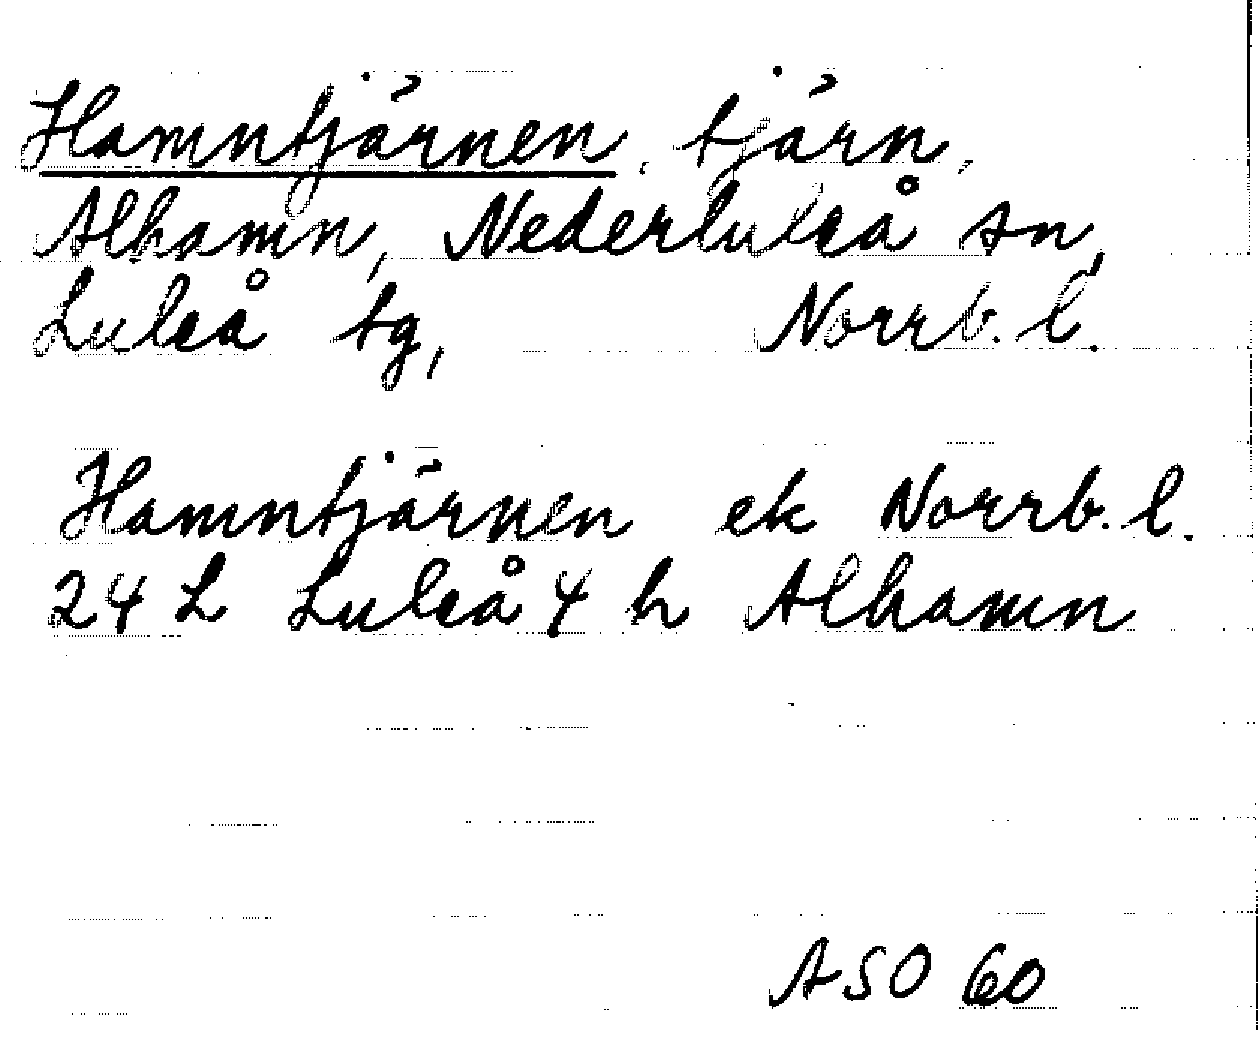 Hamntjärnen, tjärn,
Alhamn, Nederluleå sn,
Luleå tg, Norrb. l.
Hamntjärnen ek Norrb. l.
24 L Luleå 4 h Alhamn
ASO 60